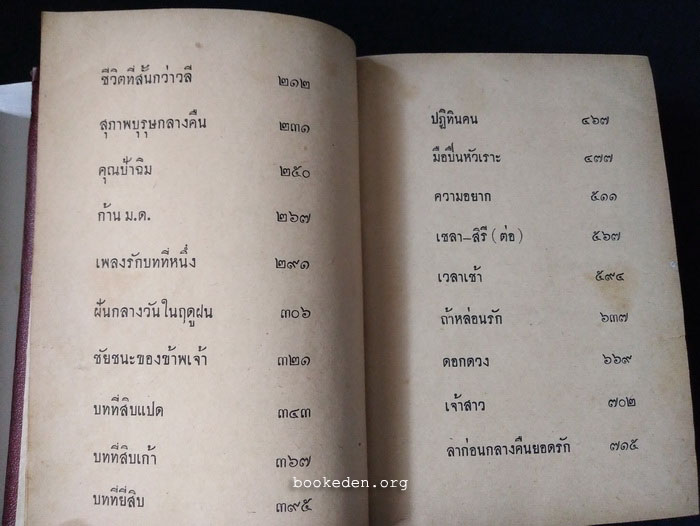 ชีวิตที่สั้นกว่าวลี ๒๑๒
สุภาพบุรุษกลางคืน ๒๓๑
คุณป้าฉิม ๒๕๐
ก้าน ม.ด. ๒๖๗
เพลงรักบทที่หนึ่ง ๒๙๑
ฝันกลางวันในฤดูฝน ๓๐๖
ชัยชนะของข้าพเจ้า ๓๒๑
บทที่สิบแปด ๓๔๓
บทที่สิบเก้า ๓๖๗
บทที่ยี่สิบ ๓๙๕
ปฏิทินคน ๔๖๗
มือปืนหัวเราะ ๔๗๗
ความอยาก ๕๑๑
เซลา–สิรี (ต่อ) ๕๖๗
เวลาเช้า ๕๙๔
ถ้าหล่อนรัก ๖๓๗
ดอกดวง ๖๖๙
เจ้าสาว ๗๐๒
ลาก่อนกลางคืนยอดรัก ๗๑๕
bookeden.org